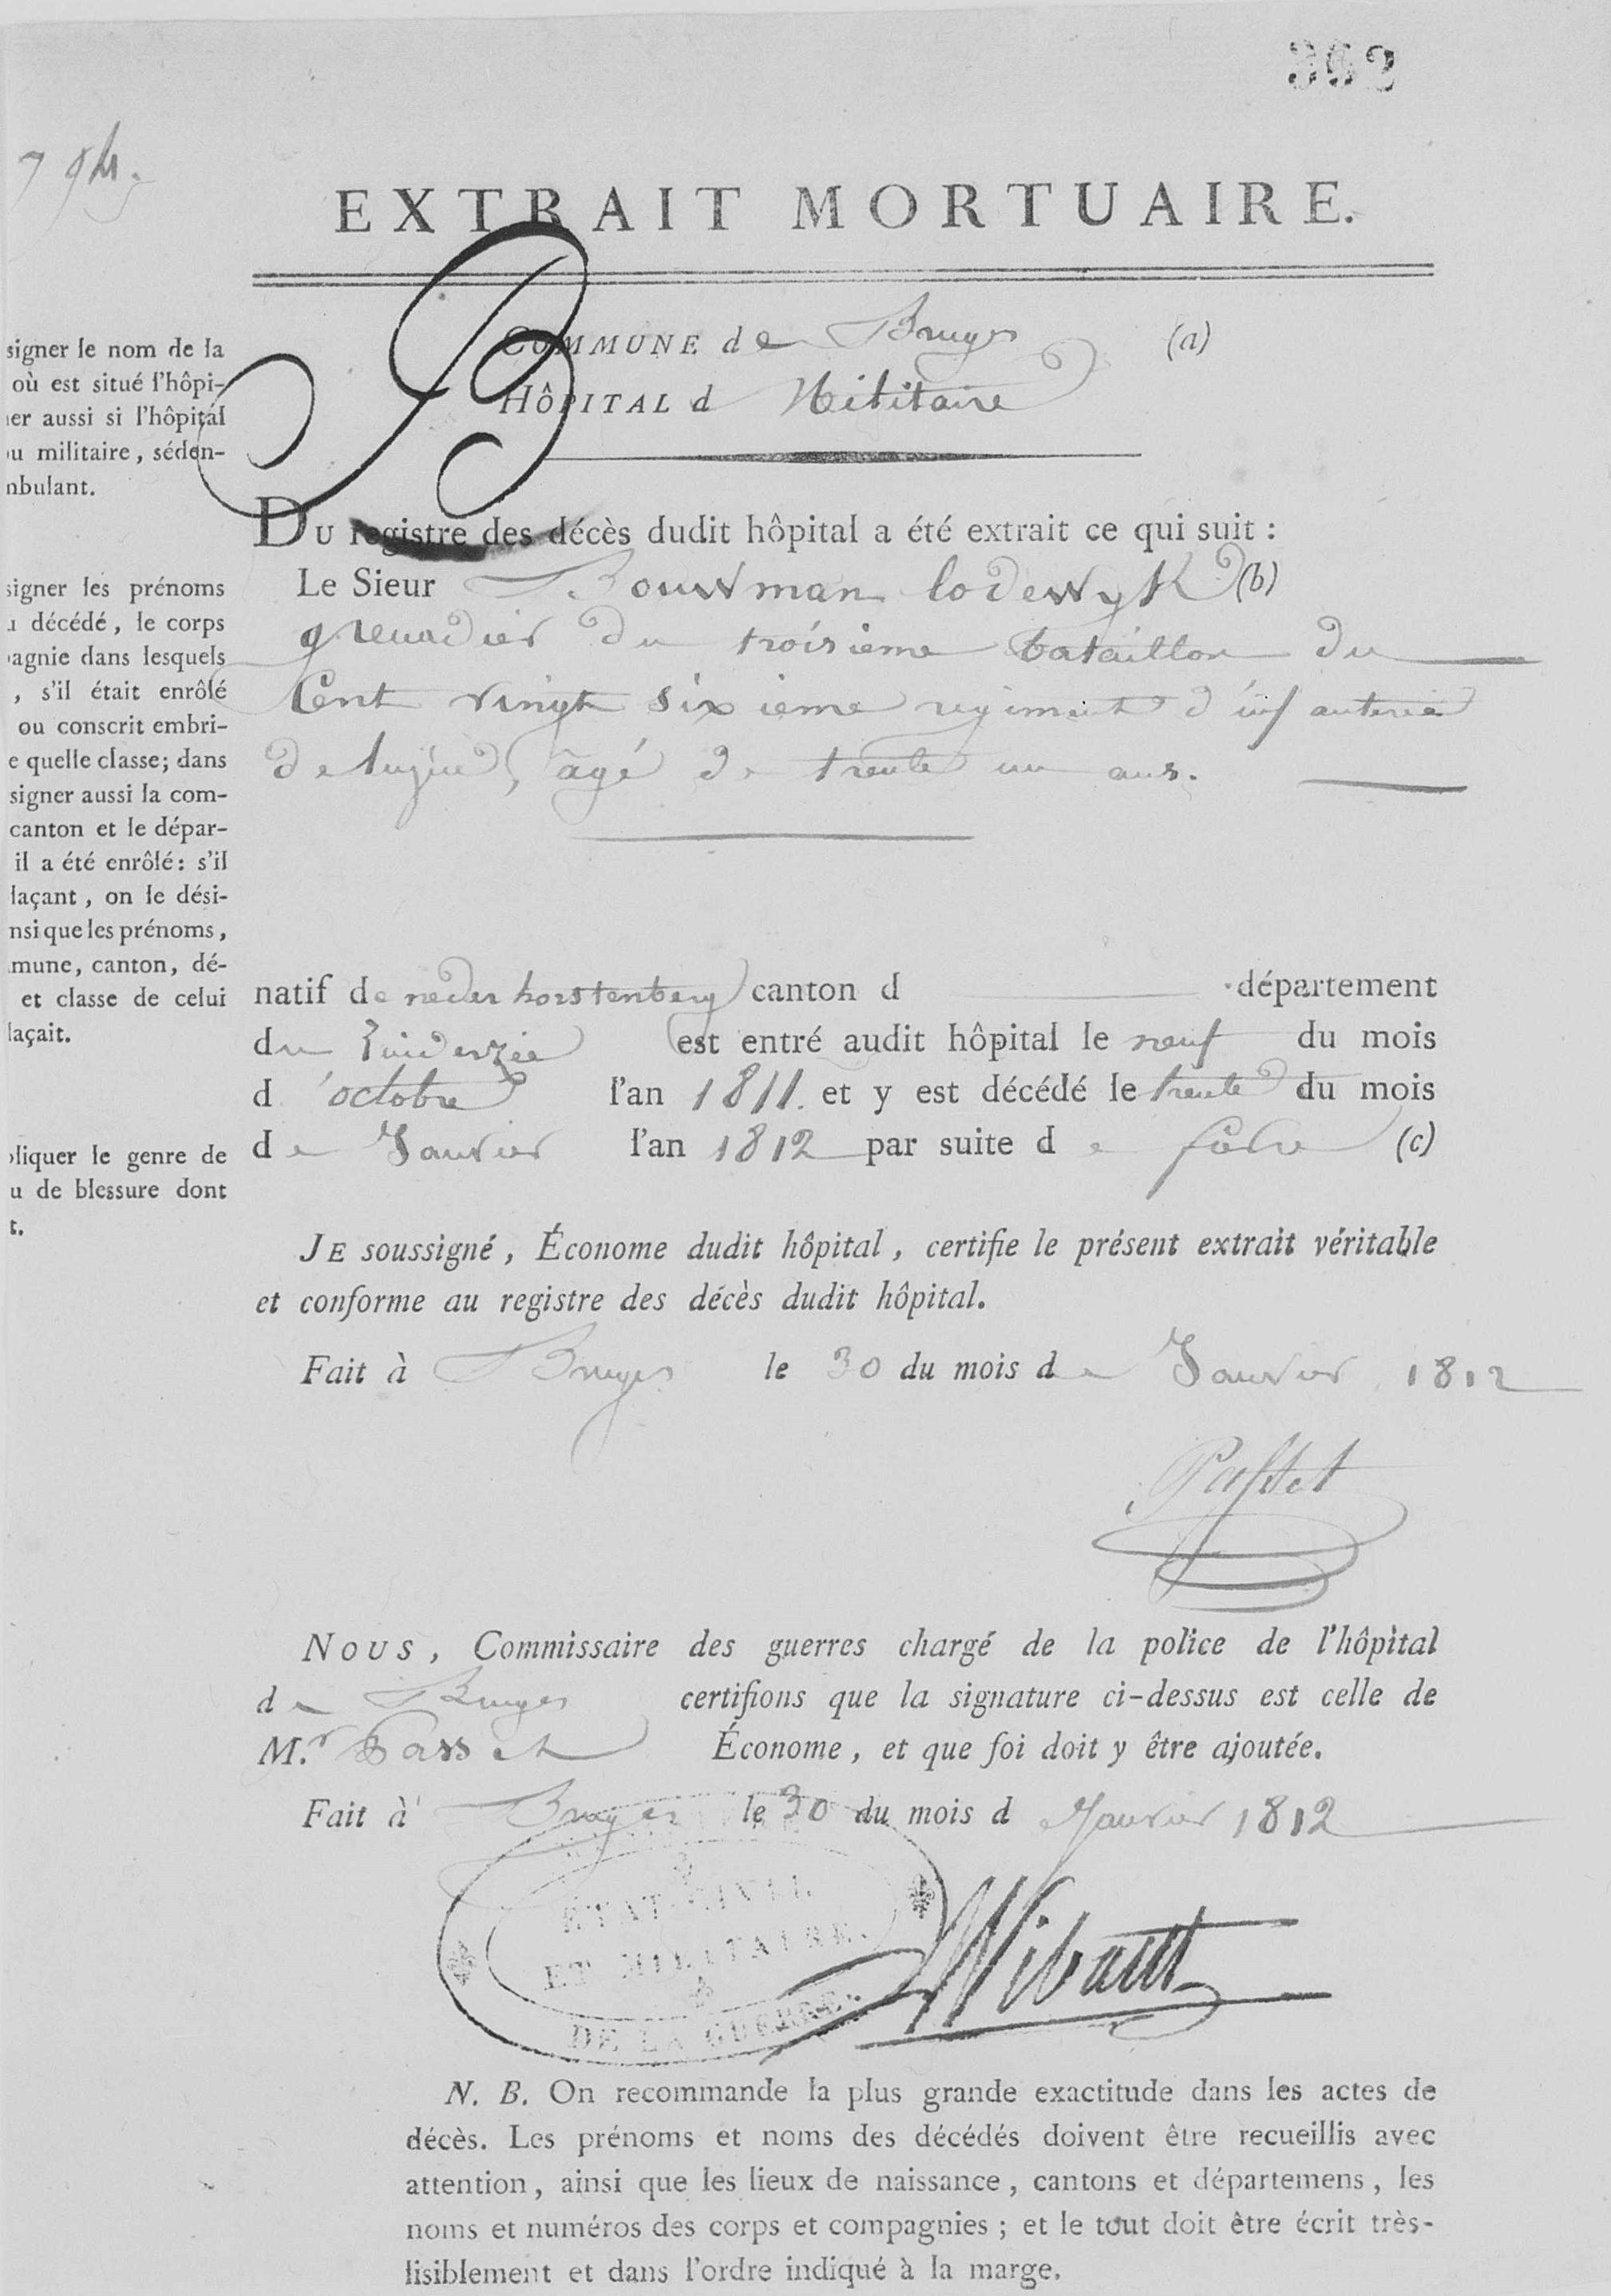 7 94.
EXTRAIT MORTUAIRE.
B
COMMUNE de Bruges (a)
HÔPITAL d Militaire
signer le nom de la
où est situé l'hôpi-
er aussi si l'hôpital
u militaire, séden-
mbulant.
DU registre des décès dudit hôpital a été extrait ce qui suit :
Le Sieur Bouwman lodewyk (b)
grenadier du troisieme bataillon du
Cent vingt sixieme regiment d'infanterie
de ligne, âgé de trente un ans.
signer les prénoms
u décédé, le corps
pagnie dans lesquels
, s'il était enrôlé
ou conscrit embri-
e quelle classe; dans
signer aussi la com-
canton et le dépar-
il a été enrôlé: s'il
laçant, on le dési-
nsi que les prénoms,
mmune, canton, dé-
et classe de celui
laçait.
natif de neder horstenberg canton d département
du Zuiderzée est entré audit hôpital le neuf du mois
d'octobre l'an 1811. et y est décédé le trente du mois
de Janvier l'an 1812 par suite de fièvre (c)
pliquer le genre de
u de blessure dont
t.
JE soussigné, Économe dudit hôpital, certifie le présent extrait véritable
et conforme au registre des décès dudit hôpital.
Fait à Bruges le 30 du mois de Janvier 1812
Passet
NOUS, Commissaire des guerres chargé de la police de l'hôpital
de Bruges certifions que la signature ci-dessus est celle de
M.r Passet Économe, et que foi doit y être ajoutée.
Fait à Bruges le 30 du mois d Janvier 1812
ÉTAT CIVIL
ET MILITAIRE.
DE LA GUERRE.
N. B. On recommande la plus grande exactitude dans les actes de
décès. Les prénoms et noms des décédés doivent être recueillis avec
attention, ainsi que les lieux de naissance, cantons et départemens, les
noms et numéros des corps et compagnies ; et le tout doit être écrit très-
lisiblement et dans l'ordre indiqué à la marge.